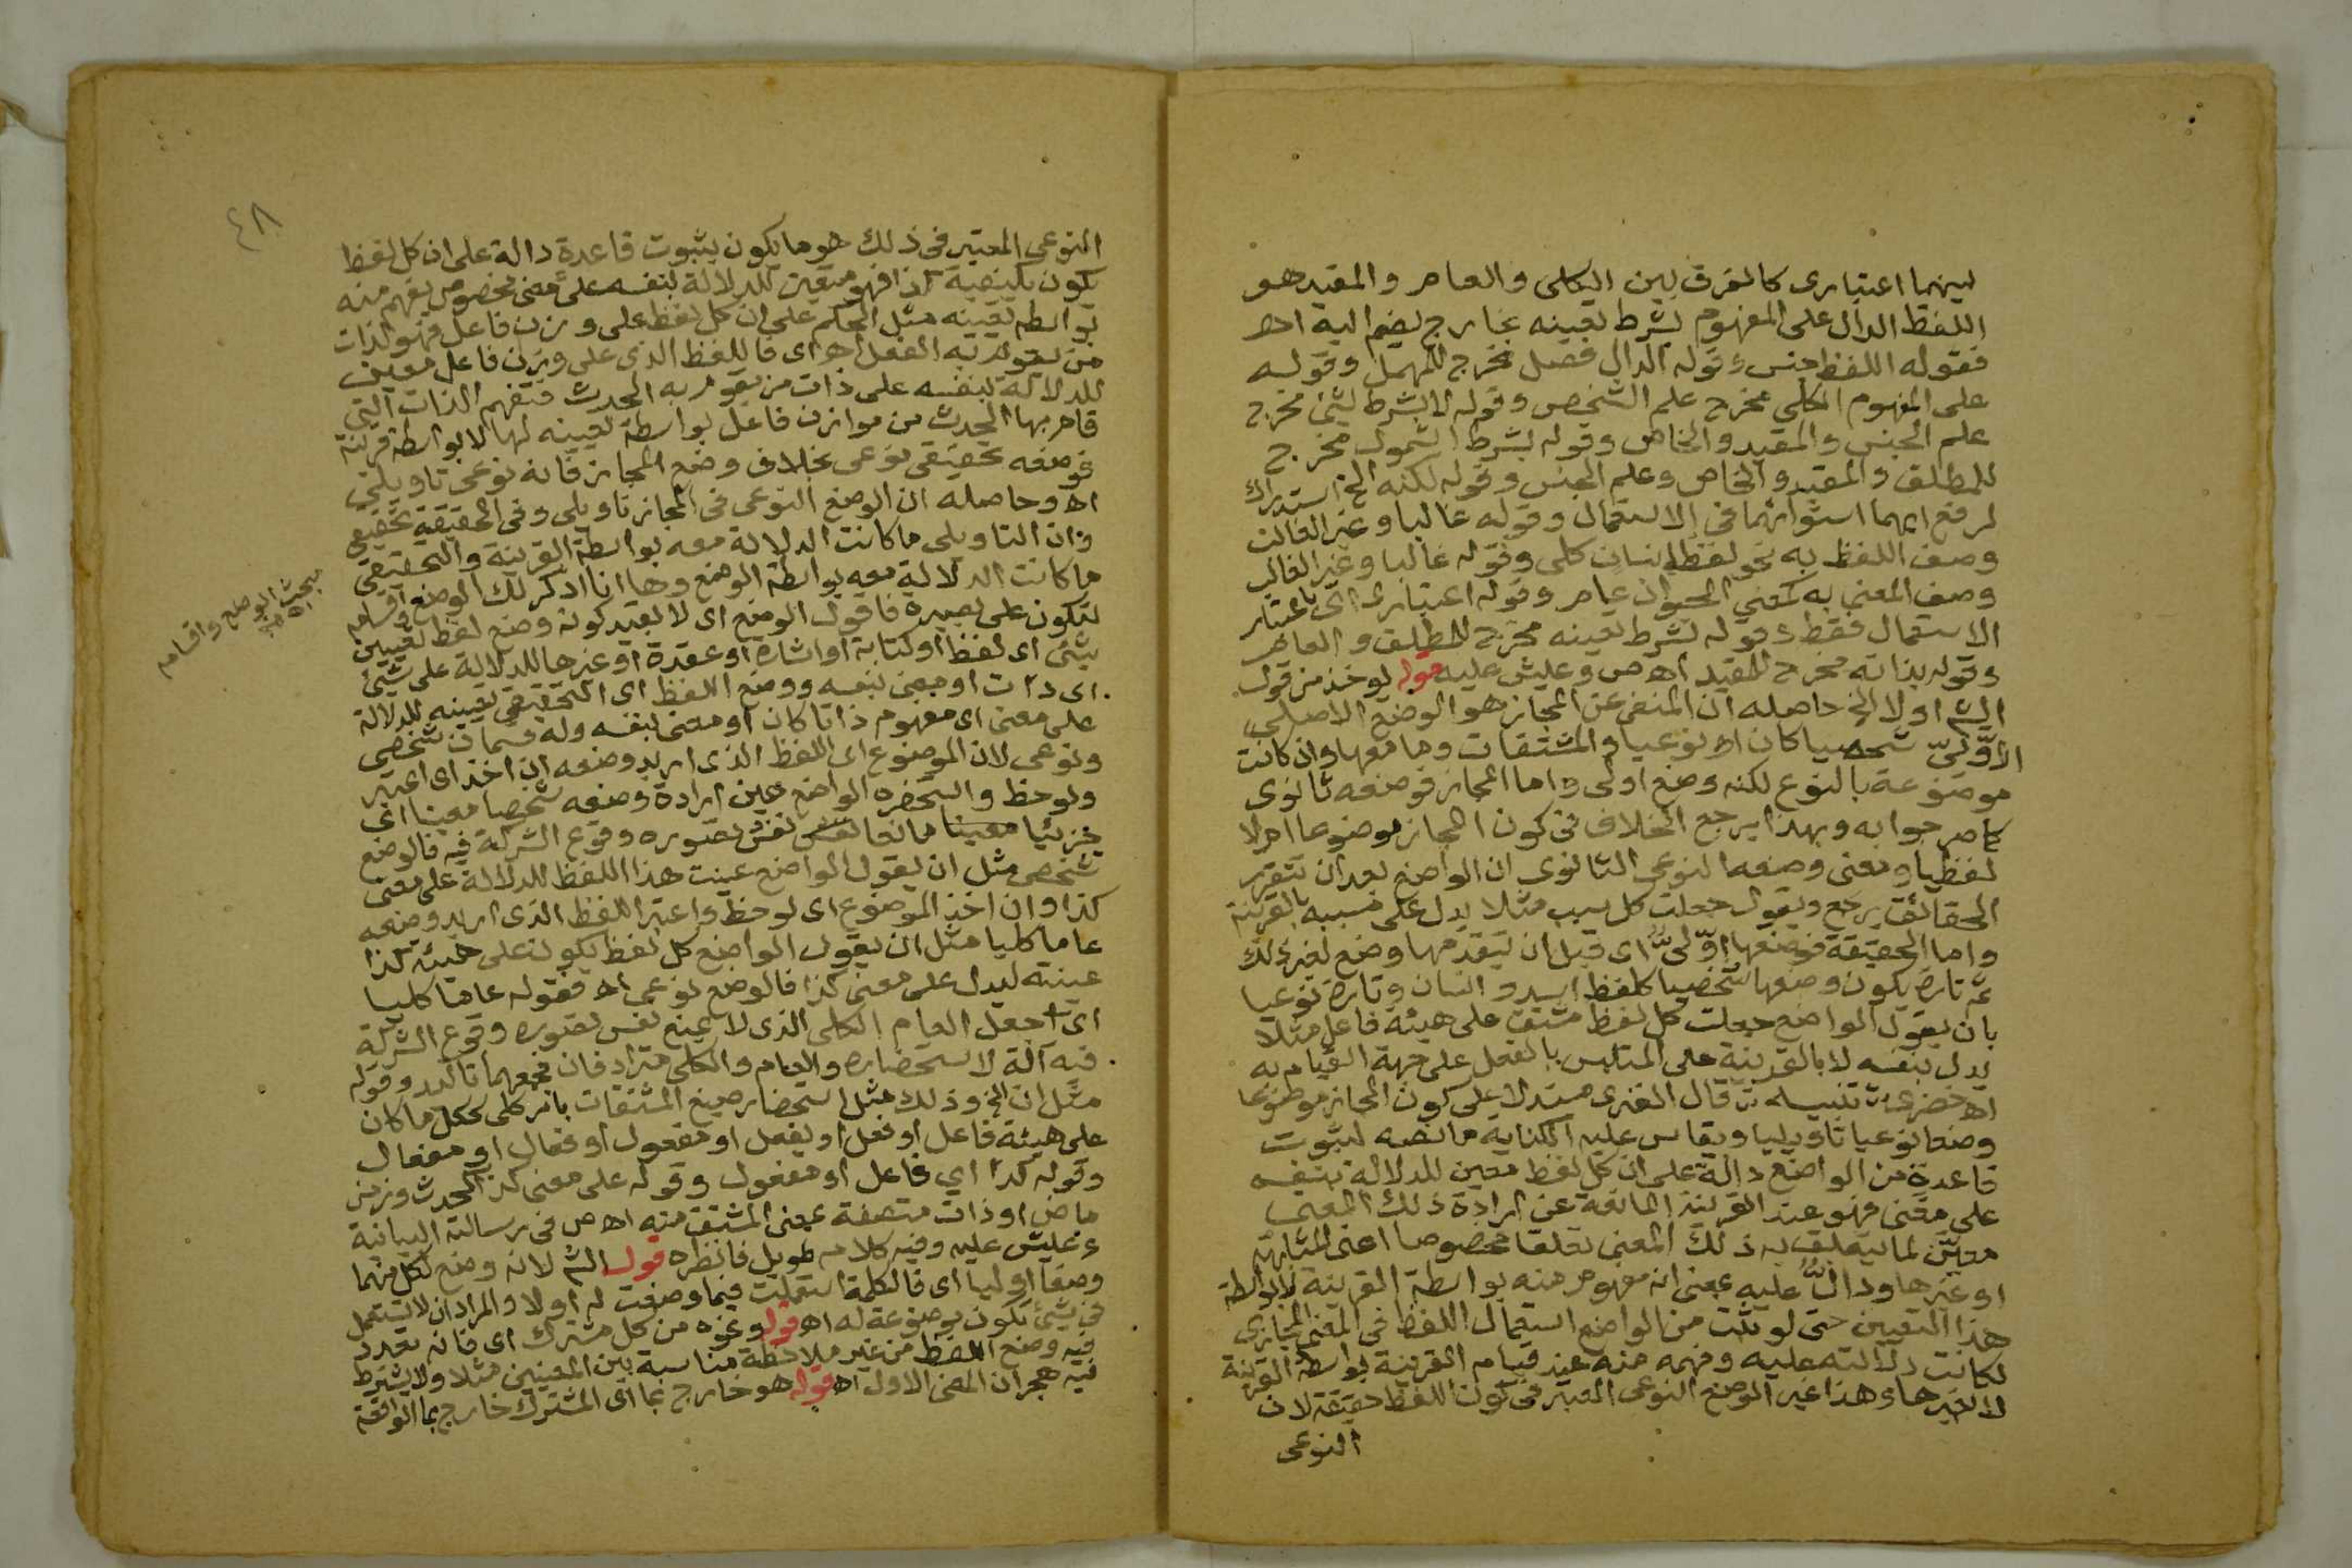 بينهما اعتبارى كالفرق بين الكلى والعام والمقيد هو
اللفظ الدال على المفهوم بشرط تعينه بخارج يضم اليه اه
فقوله اللفظ جنس وقوله الدال فصل مخرج للمهمل وقوله
على المفهوم الكلى مخرج علم الشخص وقوله لا بشرط شئ مخرج
علم الجنس والمقيد والخاص وقوله بشرط الشمول مخرج
للمطلق والمقيد والخاص وعلم الجنس وقوله لكنه الخ استدراك
لرفع ايهما استوائهما فى الاستعمال وقوله غالبا وغير الغالب
وصف اللفظ به نحو لفظ انسان كلى وقوله غالبا وغير الغالب
وصف المعنى به كمعنى الحيوان عام وقوله اعتبارى اى باعتبار
الاستعمال فقط وقوله بشرط تعينه مخرج للمطلق والعام
وقوله بذاته مخرج للمقيد اه ص وعليش عليه قوله يوخذ من قول
الشم اولا الخ حاصله ان المنفى عن المجاز هو الوضع الاصلى
الأوّلىّ شخصيا كان او نوعيا والمشتقات وما معها وان كانت
موضوعة بالنوع لكنه وضع اولى واما المجاز فوضعه ثانوى
كما مر جوابه وبهذا يرجع الخلاف فى كون المجاز موضوعا ام لا
لفظيا ومعنى وضعه النوعى الثانوى ان الواضع بعد ان تتقرر
الحقائق يرجع ويقول جعلت كل سبب مثلا يدل على مسببه بالقرينة
واما الحقيقة فوضعها اوّلىّ اى قبل ان يتقدمها وضع لغير ذلك
ثم تارة يكون وضعها شخصيا كلفظ اسد وانسان وتارة نوعيا
بان يقول الواضع جعلت كل لفظ مشتق على هيئة فاعل مثلا
يدل بنفسه لا بالقرينة على المتلبس بالفعل على جهة القيام به
اه خضرى تنبيه قال الغنرى مستدلا على كون المجاز موضوعا
وضعا نوعيا تاويليا ويقاس عليه الكناية ما نصه لثبوت
قاعدة من الواضع دالة على ان كل لفظ معين للدلالة بنفسه
على معنى فهو عند القرينة المانعة عن ارادة ذلك المعنى
معيّن لما يتعلق به ذلك المعنى تعلقا مخصوصا اعنى المشابهة
او غيرها ودالٌّ عليه بمعنى انه مفهوم منه بواسطة القرينة لا بواسطة
هذا التعيين حتى لو يثبت من الواضع استعمال اللفظ فى المعنى المجازى
لكانت دلالته عليه وفهمه منه عند قيام القرينة بواسطة القرينة
لا لغيرها وهذا غير الوضع النوعى المعتبر فى كون اللفظ حقيقة لان
النوعى
٤٨
النوعى المعتبر فى ذلك هو ما يكون بثبوت قاعدة دالة على ان كل لفظ
يكون بكيفية كذا فهو متعين للدلالة بنفسه على معنى مخصوص يفهم منه
بواسطة تعينه مثل الحكم على ان كل لفظ على وزن فاعل فهو لذات
من يقوم به الفعل اه اى فاللفظ الذى على وزن فاعل معين
للدلالة بنفسه على ذات من يقوم به الحدث فتفهم الذات التى
قام بها الحدث من موازن فاعل بواسطة تعيينه لها لا بواسطة قرينة
فوضعه تحقيقى نوعى بخلاف وضع المجاز فانه نوعى تاويلى
اه وحاصله ان الوضع النوعى فى المجاز تاويلى وفى الحقيقة تحقيقى
وان التاويلى ما كانت الدلالة معه بواسطة القرينة والتحقيقى
ما كانت الدلالة معه بواسطة الوضع وها انا اذكر لك الوضع واقسامه
لتكون على بصيرة فاقول الوضع اى لا بقيد كونه وضع لفظ تعيين
شئ اى لفظ او كتابة او اشارة او عقدة او غيرها للدلالة على شئ
اى ذات او معنى بنفسه ووضع اللفظ اى التحقيقى تعيينه للدلالة
على معنى اى مفهوم ذاتا كان او معنى بنفسه وله قسمان شخصى
ونوعى لان الموضوع اى اللفظ الذى اريد وضعه ان اخذ اى اعتبر
ولوحظ واستحضره الواضع حين ارادة وضعه شخصا معينا اى
جزئيا معينا مانعا نفس تصوره وقوع الشركة فيه فالوضع
شخصى مثل ان يقول الواضع عينت هذا اللفظ للدلالة على معنى
كذا وان اخذ الموضوع اى لوحظ واعتبر اللفظ الذى اريد وضعه
عاما كليا مثل ان يقول الواضع كل لفظ يكون على هيئة كذا
عينته ليدل على معنى كذا فالوضع نوعى اه فقوله عاما كليا
اى جعل العام الكلى الذى لا يمنع نفس تصوره وقوع الشركة
فيه آلة لاستحضاره والعام والكلى مترادفان فجمعهما تاكيد وقوله
مثل ان الخ وذلك مثل استحضار صيغ المشتقات بامر كلى ككل ما كان
على هيئة فاعل او فعل او يفعل او مفعول او فعال او مفعال
وقوله كذا اي فاعل او مفعول وقوله على معنى كذا كحدث وزمن
ماض او ذات متصفة بمعنى المشتق منه اه ص فى رسالته البيانية
وعليش عليه وفيه كلام طويل فانظره قول الشم لانه وضع لكل منهما
وضعا اوليا اى فالكلمة استعملت فيما وضعت له اولا والمراد ان لا تستعمل
فى شئ تكون موضوعة له اه قوله ونحوه من كل مشترك اى فانه تعدد
فيه وضع اللفظ من غير ملاحظة مناسبة بين المعنيين مثلا ولا يشترط
فيه هجران المعنى الاول اه قوله هو خارج بما اى المشترك خارج بما الواقعة
مبحث الوضع واقسامه